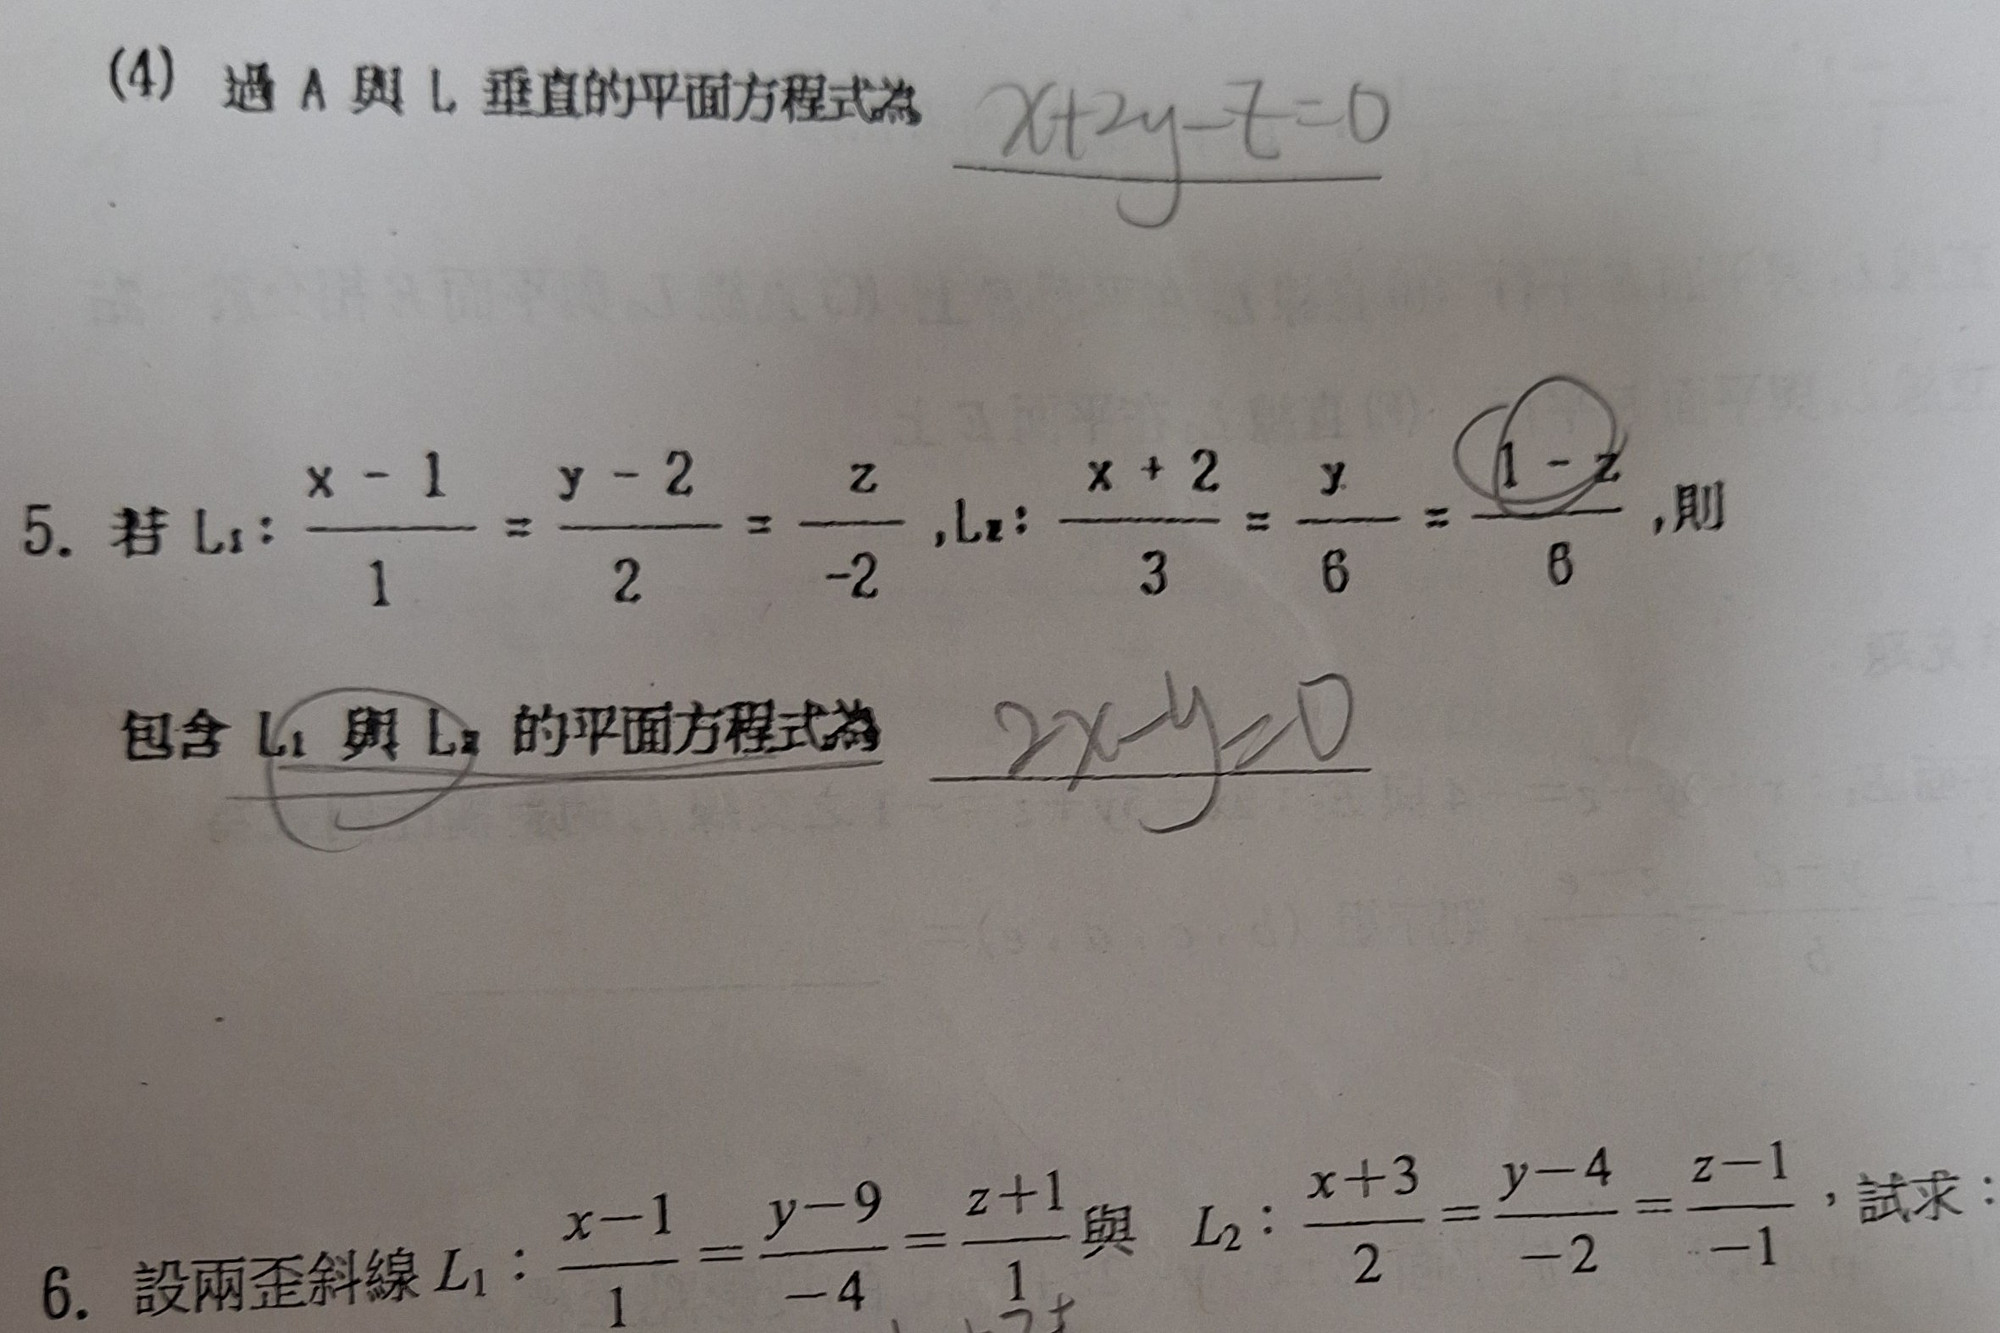 (4) 過 A 與 L 垂直的平面方程式為 x+2y-z=0
5. 若 L₁: (x - 1)/1 = (y - 2)/2 = z/-2 , L₂: (x + 2)/3 = y/6 = (1 - z)/6 ,則
包含 L₁ 與 L₂ 的平面方程式為 2x-y=0
6. 設兩歪斜線 L₁: (x-1)/1 = (y-9)/-4 = (z+1)/1 與 L₂: (x+3)/2 = (y-4)/-2 = (z-1)/-1 ,試求: